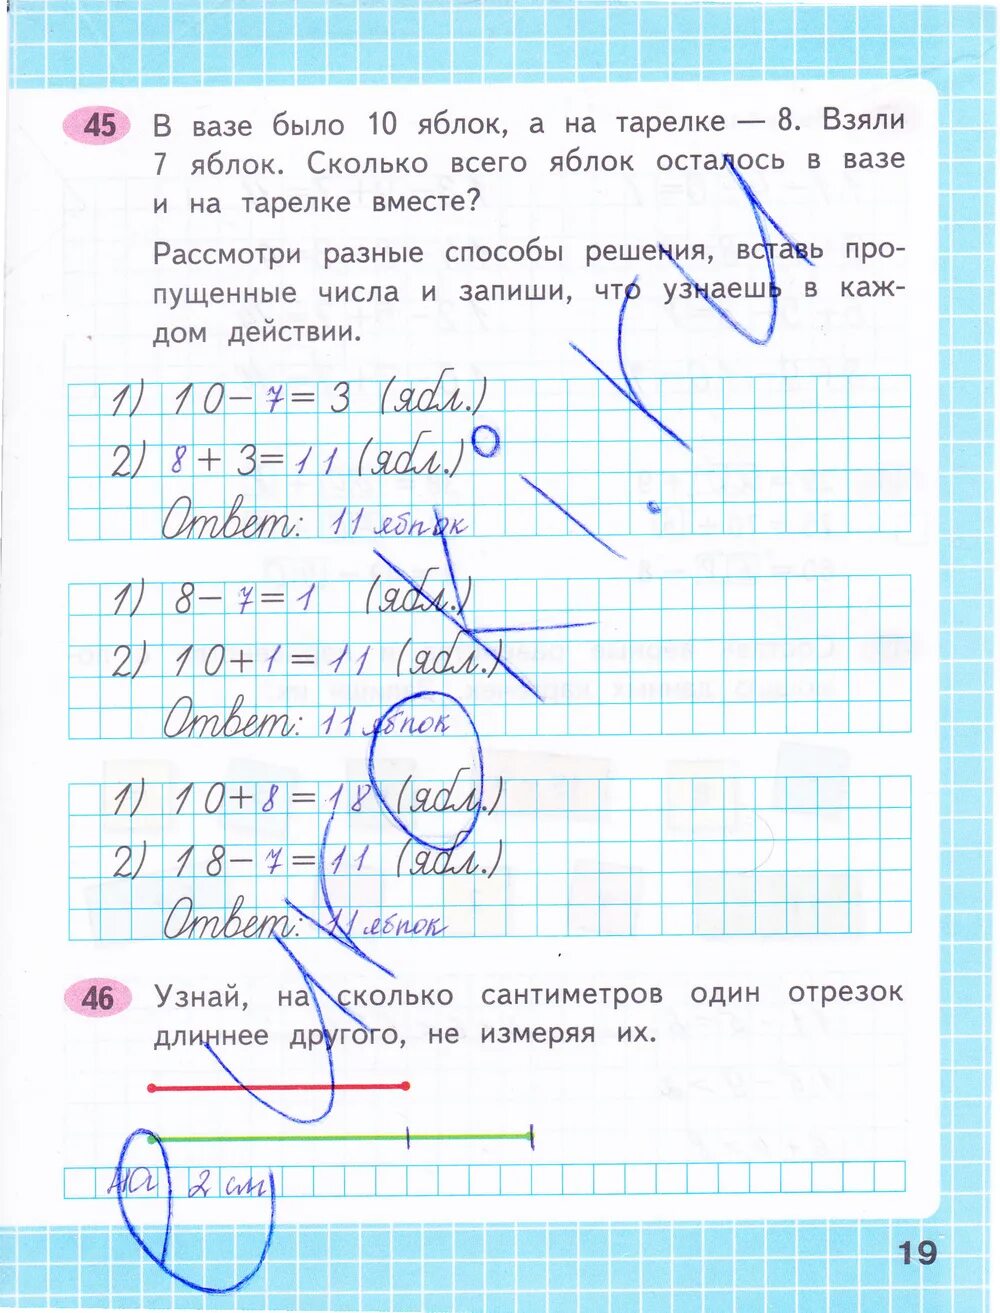 45 В вазе было 10 яблок, а на тарелке — 8. Взяли
7 яблок. Сколько всего яблок осталось в вазе
и на тарелке вместе?
Рассмотри разные способы решения, вставь про-
пущенные числа и запиши, что узнаешь в каж-
дом действии.
1) 10 − 7 = 3 (ябл.)
2) 8 + 3 = 11 (ябл.)
Ответ: 11 яблок
1) 8 − 7 = 1 (ябл.)
2) 10 + 1 = 11 (ябл.)
Ответ: 11 яблок
1) 10 + 8 = 18 (ябл.)
2) 18 − 7 = 11 (ябл.)
Ответ: 11 яблок
46 Узнай, на сколько сантиметров один отрезок
длиннее другого, не измеряя их.
на 2 см
19